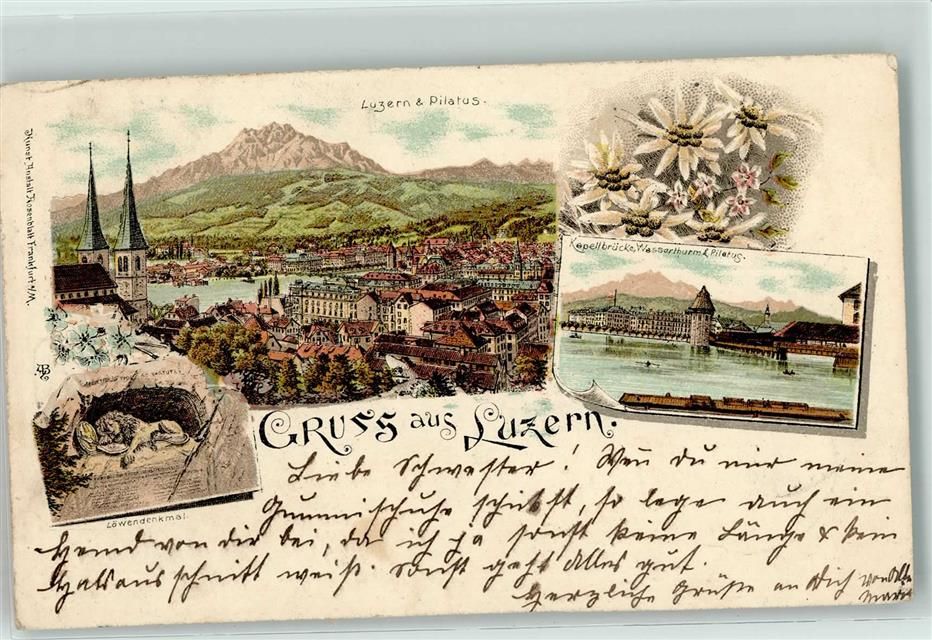 Luzern & Pilatus.
Kunst-Anstalt Rosenblatt Frankfurt a/M.
Kapellbrücke, Wasserthurm & Pilatus.
Löwendenkmal.
Gruss aus Luzern.
Liebe Schwester! Wen du mir meine
Gummischuhe schickst, so lege auch ein
Hemd von dir bei, da ich ja sonst keine Länge & kein
Halsausschnitt weiß. Sonst geht Alles gut.
Herzliche Grüße an Dich von
Marie